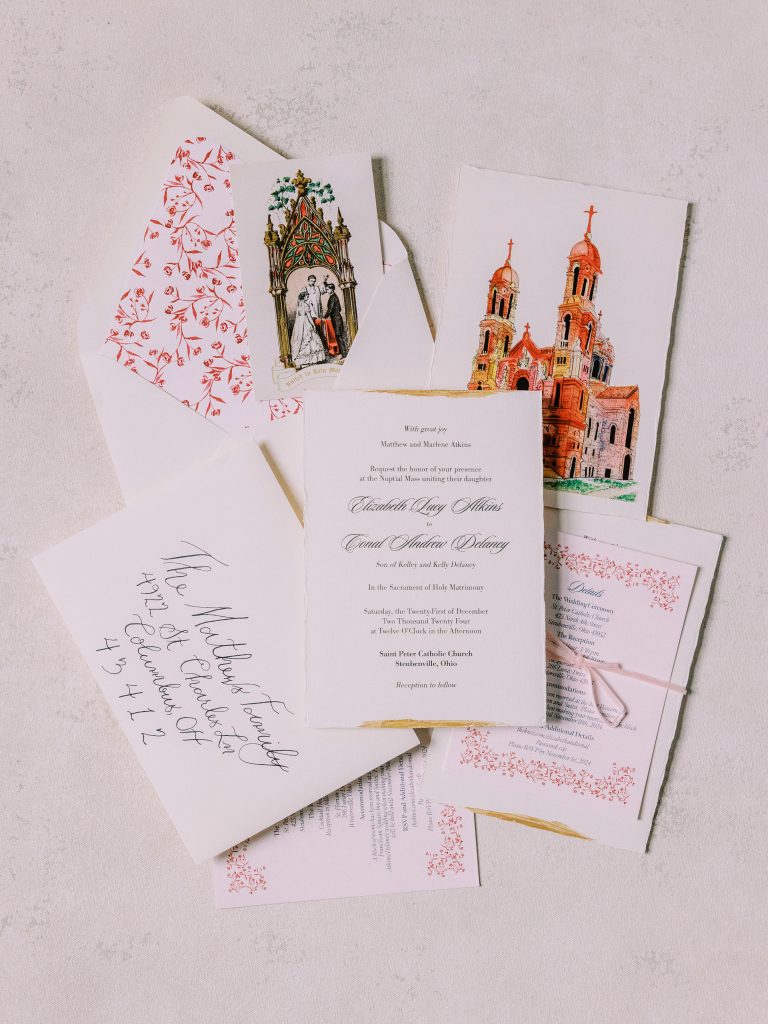 United in Holy
With great joy
Matthew and Marlene Atkins
Request the honor of your presence
at the Nuptial Mass uniting their daughter
Elizabeth Lucy Atkins
to
Conal Andrew Delaney
Son of Kelley and Kelly Delaney
In the Sacrament of Holy Matrimony
Saturday, the Twenty-First of December
Two Thousand Twenty Four
at Twelve O'Clock in the Afternoon
Saint Peter Catholic Church
Steubenville, Ohio
Reception to follow
The Matthews Family
4922 St. Charles Ln
Columbus, OH
43412
Details
The Wedding Ceremony
St. Peter Catholic Church
425 North 4th Street
Steubenville, Ohio 43952
The Reception
Additional Details
Please RSVP by November 16, 2024
RSVP and Additional Details